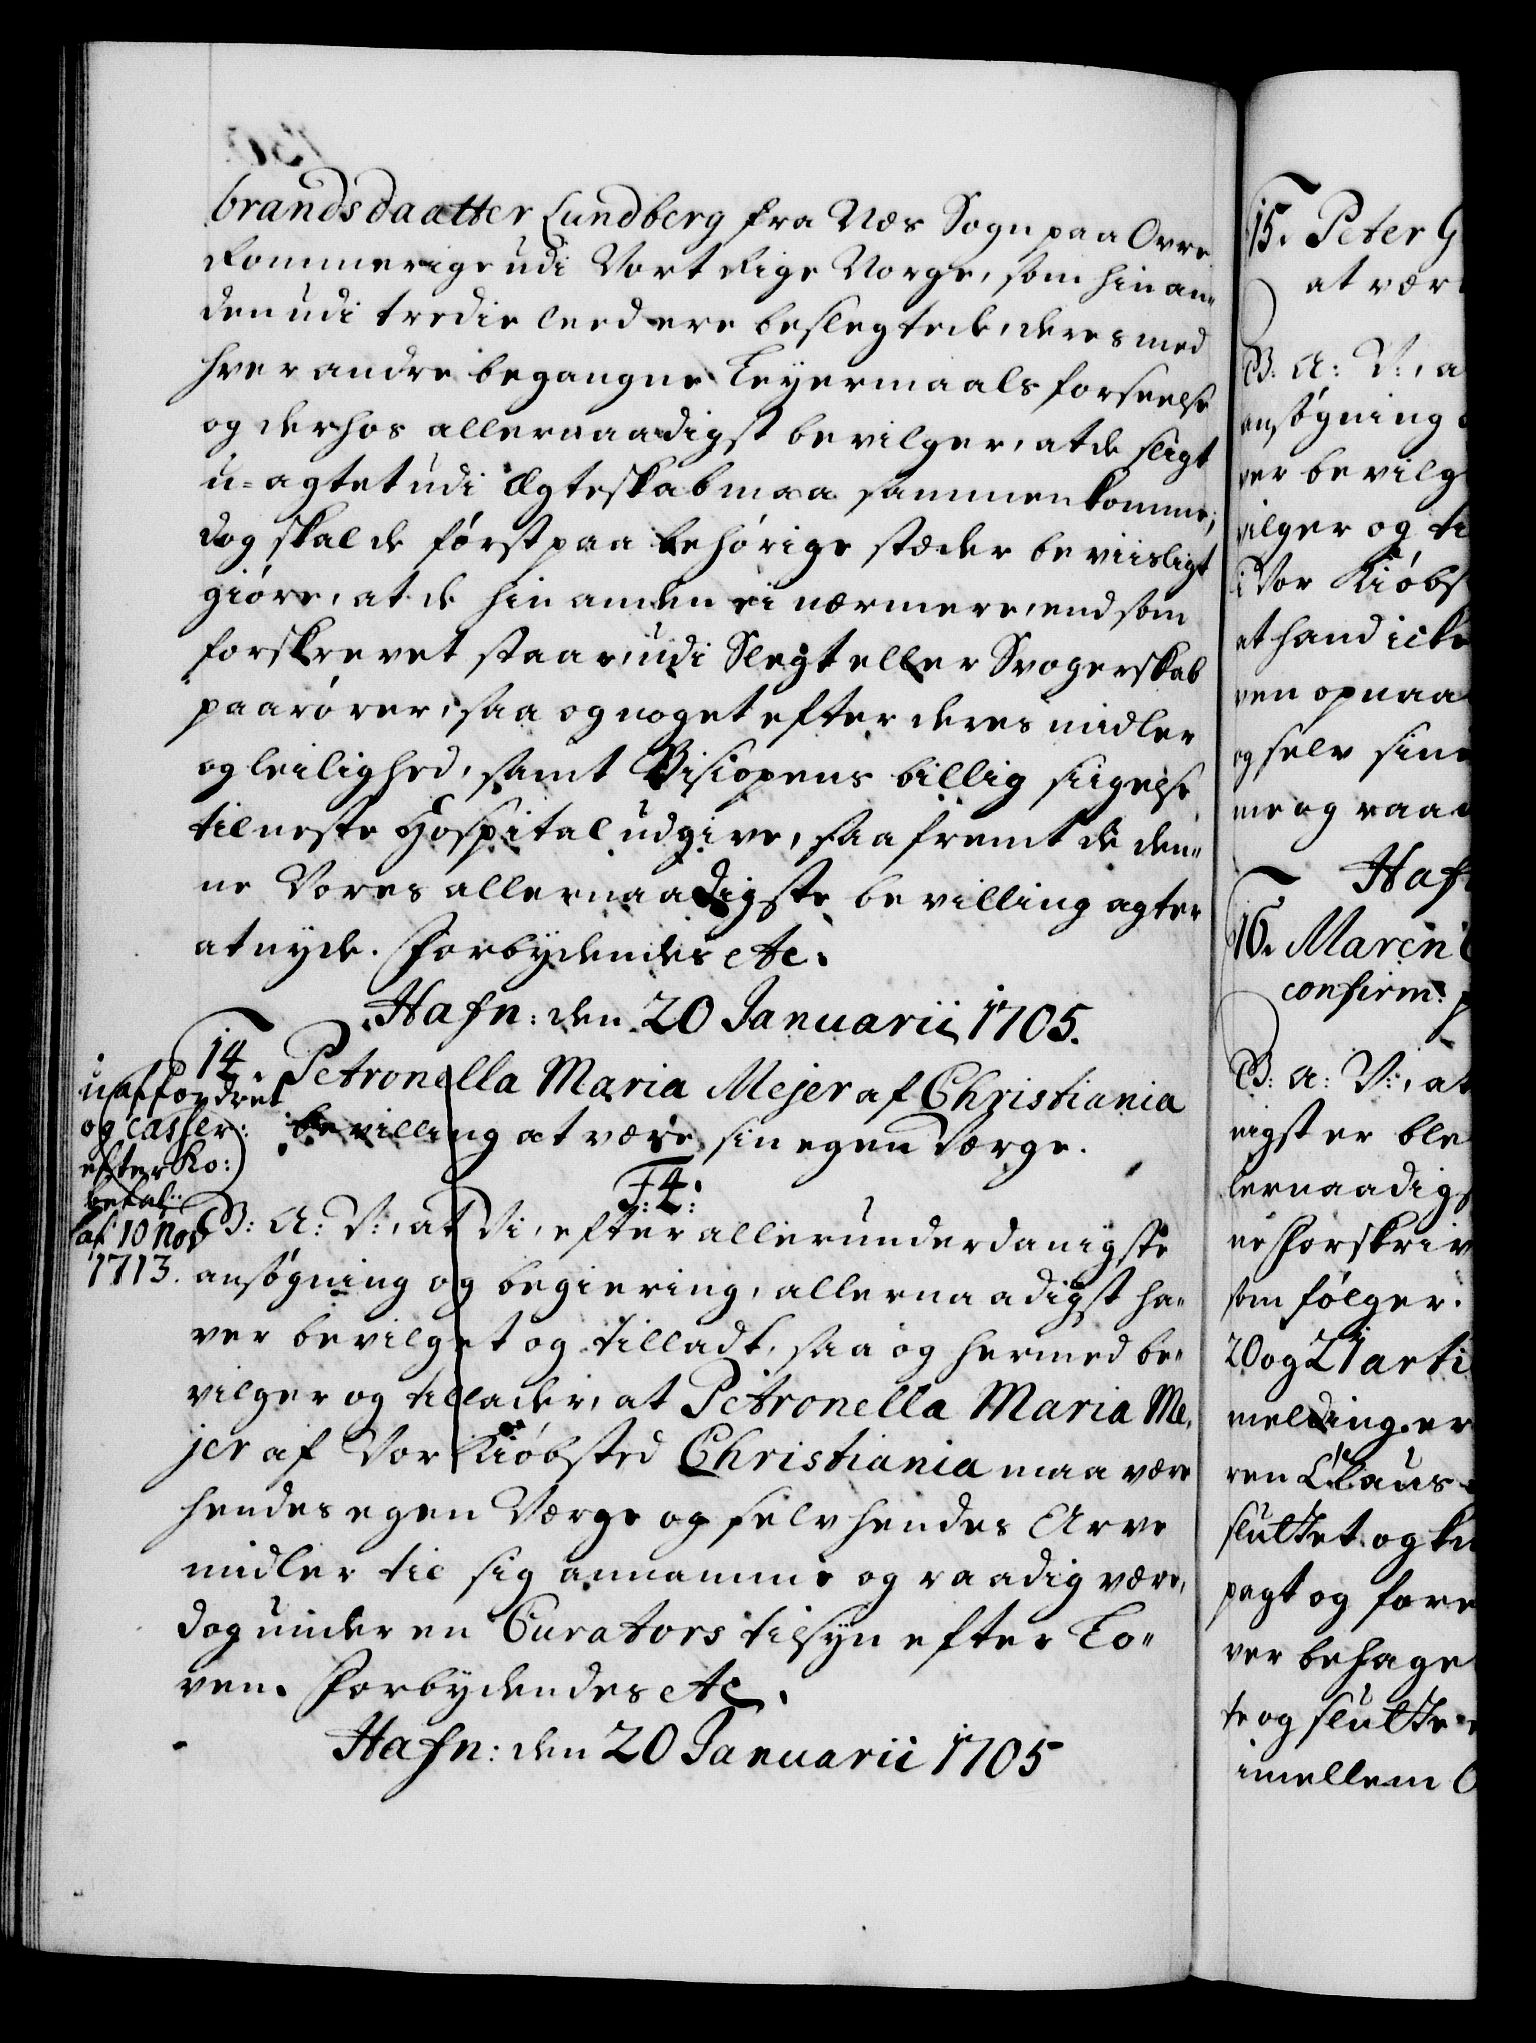 brandsdaatter Lundberg fra Næs Sogn paa Ovre
Rommerige udi Vort Rige Norge, som hinan„
den udi tredie leed ere beslegtede, deres med
hver andre begangne Leyermaals forseelse
og derhos allernaadigst bevilger, at de sligt
u-agtet udi Ægteskab maa sammenkomme;
dog skal de først paa behørige stæder beviisligt
giøre, at de hinanden ei nærmere, end som
forskrevet staar, udi Slegt eller Svogerskab
paarører, saa og noget efter deres midler
og leilighed, samt Bisiopens billig sigelse
til neste Hospital udgive, saa fremt de den„
ne Vores allernaadigste bevilling agter
at nyde. Forbydendes etc.
Hafn: den 20 Januarii 1705.
14. Petronella Maria Mejer af Christiania
bevilling at være sin egen Værge.
uaffordret
og casser:
efter Ko:
befal:
af 10 Nov
1713.
F: 4:
G: A: V:, at Vi, efter allerunderdanigste
ansøgning og begiering, allernaadigst ha„
ver bevilget og tilladt, saa og hermed be„
vilger og tillader, at Petronella Maria Me„
jer af Vor Kiøbsted Christiania maa være
hendes egen Værge og selv hendes Arve
midler til sig annamme og raadig være,
dog under en Curators tilsyn efter Lo„
ven. Forbydendes etc.
Hafn: den 20 Januarii 1705
15. Peter G
at vær
G: A: V:, a
ansøgning
ver bevilg
vilger og ti
i Vor Kiøbs
at hand icke
ven opnaa
og selv sine
me og raa
Haf
16. Maren
confirm: p
G: A: V:, at
nigst er ble
lernaadigs
ne Forskriv
som følger.
20 og 21 arti
melding er
ren Claus
sluttet og ku
pagt og fore
ver behage
te og slutte
imellem